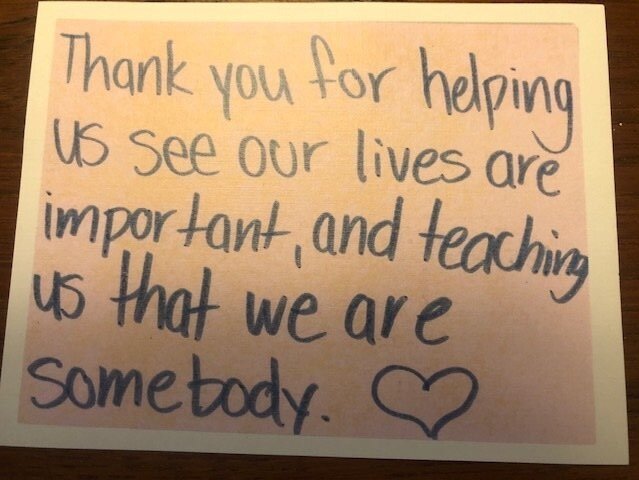 Thank you for helping
us see our lives are
important, and teaching
us that we are
somebody. ♡